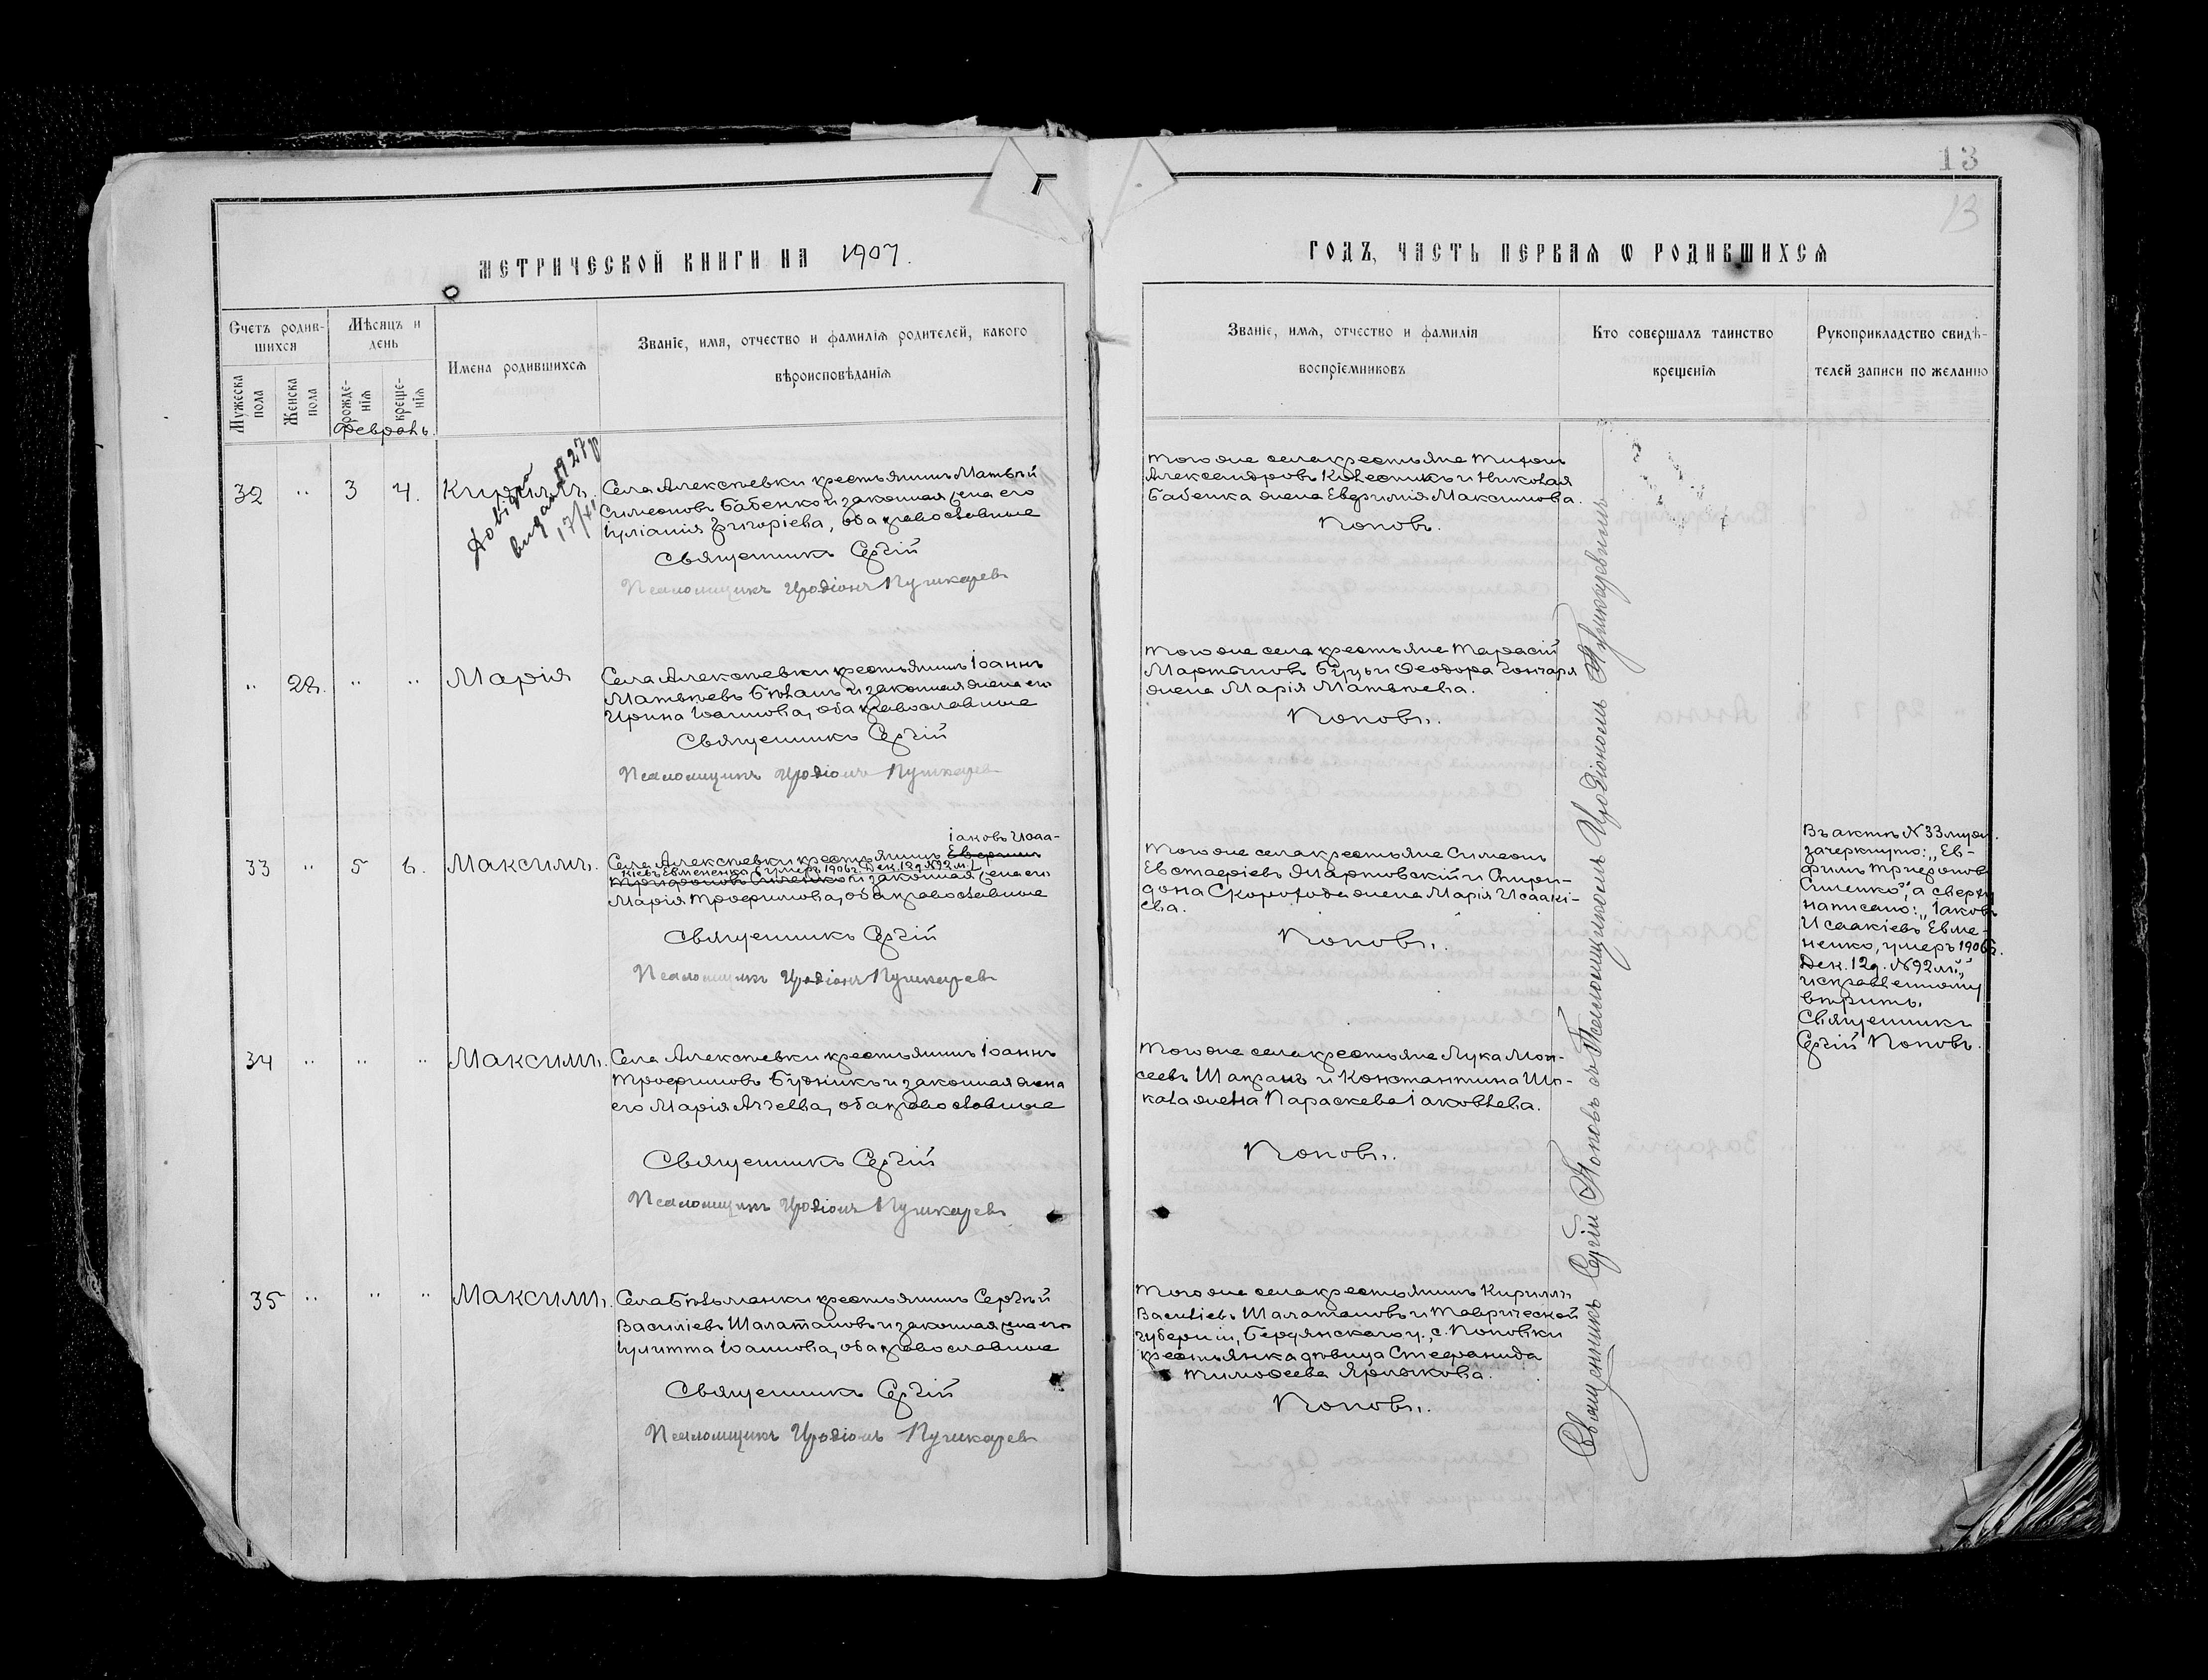 13
13
МЕТРИЧЕСКОЙ КНИГИ НА 1907.
ГОДЪ, ЧАСТЬ ПЕРВАЯ Ѡ РОДИВШИХСЯ
Счетъ родив-
шихся
Мужеска пола
Женска пола
Мѣсяцъ и
день
рожде-
нія
креще-
нія
Февраль.
Имена родившихся
Званіе, имя, отчество и фамилія родителей, какого
вѣроисповѣданія
Званіе, имя, отчество и фамилія
воспріемниковъ
Кто совершалъ таинство
крещенія
Рукоприкладство свидѣ-
телей записи по желанію
32 " 3 4. Кириллъ.
видана 1927р
17/XI
Села Алексѣевки крестьянинъ Матвѣй
Симеоновъ Бабенко и законная жена его
Іуліанія Григоріева, оба православные
Священникъ Сергій
Псаломщикъ Иродіонъ Пушкаревъ
Того же села крестьяне Тихонъ
Александровъ Колесникъ и Николая
Бабенка жена Евфимія Максимова.
Поповъ.
" 28. " " Марія
Села Алексѣевки крестьянинъ Іоаннъ
Матвѣевъ Бѣланъ и законная жена его
Ирина Іоаннова, оба православные
Священникъ Сергій
Псаломщикъ Иродіонъ Пушкаревъ
Того же села крестьяне Тарасій
Мартыновъ Буцъ и Ѳеодора Гончаря
жена Марія Матвѣева.
Поповъ.
33 " 5 6. Максимъ.
Іаковъ Исаа-
Села Алексѣевки крестьянинъ Евфимъ
кіевъ Евмененко, умеръ 1906г. Дек. 12д. №92 м.
Трифоновъ Синенко и законная жена его
Марія Трофимова, оба православные
Священникъ Сергій
Псаломщикъ Иродіонъ Пушкаревъ
Того же села крестьяне Симеонъ
Евстафіевъ Марковскій и Спири-
дона Скорохода жена Марія Исаакі-
ева.
Поповъ.
Въ актѣ №33 муж.
зачеркнуто: „Ев-
фимъ Трифоновъ
Синенко", а сверху
написано: „Іаковъ
Исаакіевъ Евме-
ненко, умеръ 1906г.
Дек. 12д. №92 м.",
исправленному
вѣрить.
Священникъ
Сергій Поповъ.
34 " " " Максимъ.
Села Алексѣевки крестьянинъ Іоаннъ
Трофимовъ Будникъ и законная жена
его Марія Агѣева, оба православные
Священникъ Сергій
Псаломщикъ Иродіонъ Пушкаревъ
Того же села крестьяне Лука Мои-
сеевъ Шапранъ и Константина Шо-
кала жена Параскева Іаковлева.
Поповъ.
35 " " " Максимъ.
Села Бѣльманки крестьянинъ Сергѣй
Василіевъ Шалатановъ и законная жена его
Іулитта Іоаннова, оба православные
Священникъ Сергій
Псаломщикъ Иродіонъ Пушкаревъ
Того же села крестьянинъ Кириллъ
Василіевъ Шалатановъ и Таврической
губерніи, Бердянскаго у., с. Поповки
крестьянка дѣвица Стефанида
Тимоѳеева Ярлыкова.
Поповъ.
Священникъ Сергій Поповъ съ Псаломщикомъ Иродіономъ Пушкаревымъ